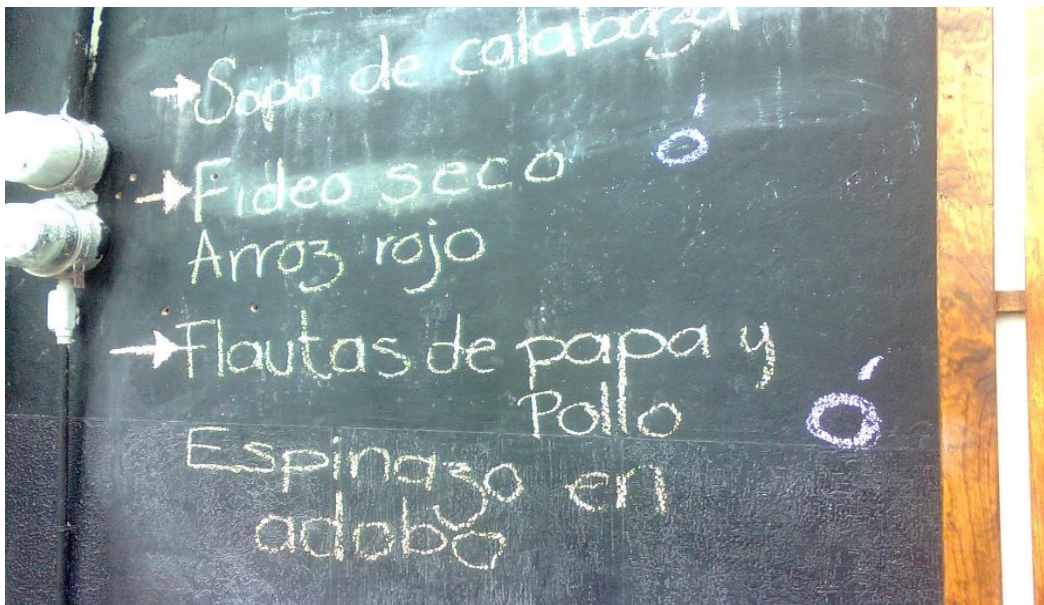 → Sopa de calabaza
→ Fideo seco ó
Arroz rojo
→ Flautas de papa y
Pollo ó
Espinazo en
adobo